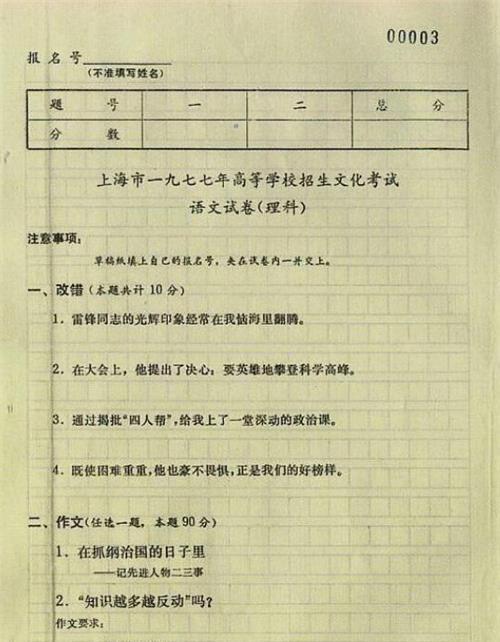 00003
报名号
(不准填写姓名)
题 号 一 二 总 分
分 数
上海市一九七七年高等学校招生文化考试
语文试卷(理科)
注意事项:
草稿纸填上自己的报名号,夹在试卷内一并交上。
一、改错(本题共计10分)
1. 雷锋同志的光辉印象经常在我恼海里翻腾。
2. 在大会上,他提出了决心:要英雄地攀登科学高峰。
3. 通过揭批“四人帮”,给我上了一堂深动的政治课。
4. 既使困难重重,他也豪不畏惧,正是我们的好榜样。
二、作文(任选一题,本题90分)
1. 在抓纲治国的日子里
——记先进人物二三事
2. “知识越多越反动”吗?
作文要求: